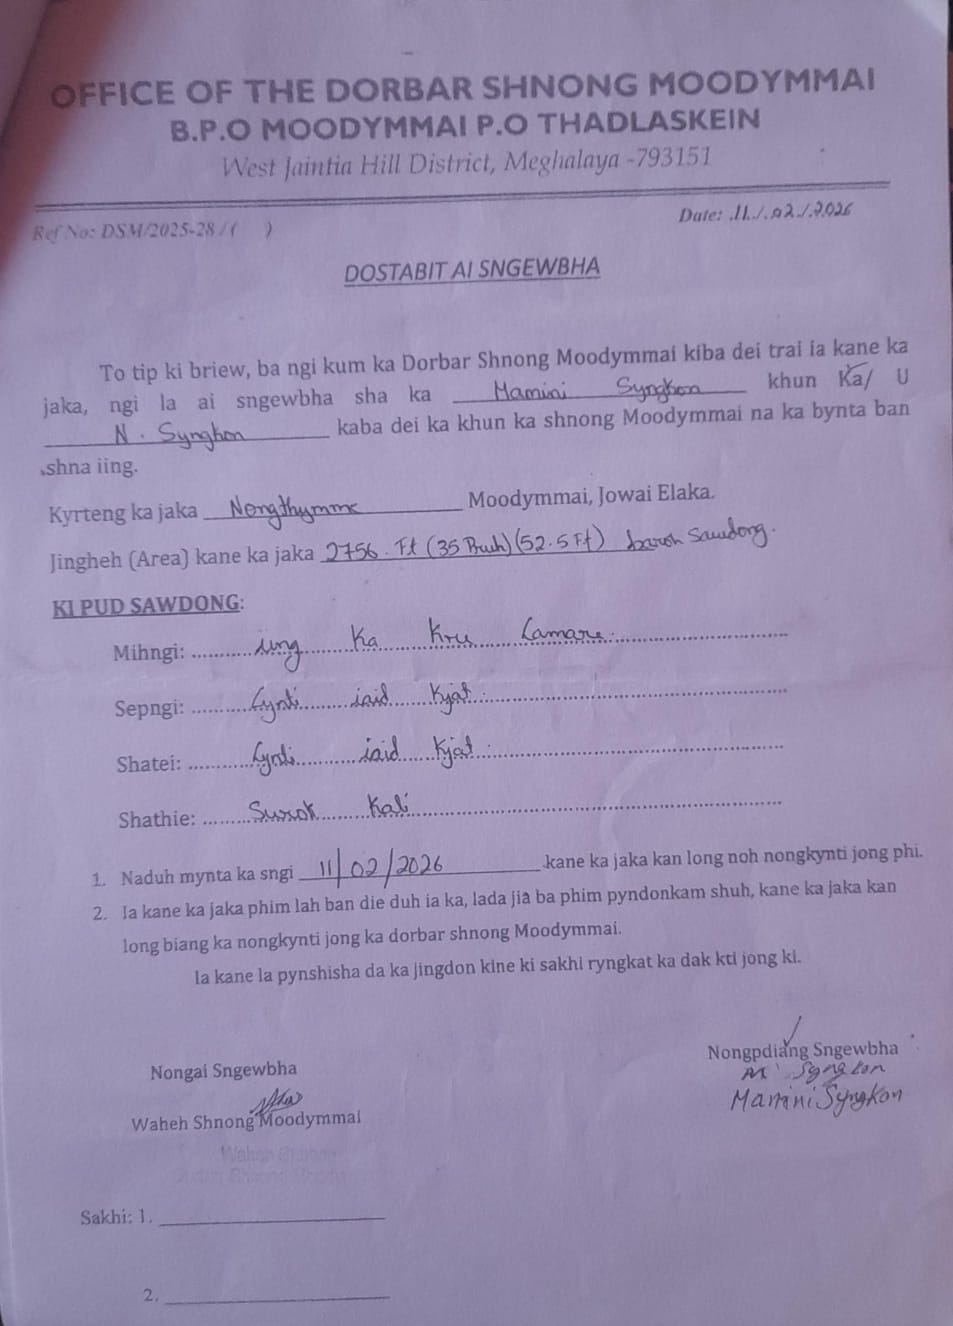 OFFICE OF THE DORBAR SHNONG MOODYMMAI
B.P.O MOODYMMAI P.O THADLASKEIN
West Jaintia Hill District, Meghalaya -793151
Ref No: DSM/2025-28/( )
Date: 11/02/2026
DOSTABIT AI SNGEWBHA
To tip ki briew, ba ngi kum ka Dorbar Shnong Moodymmai kiba dei trai ia kane ka
jaka, ngi la ai sngewbha sha ka Mamini Syngkon khun Ka/ U
N. Syngkon kaba dei ka khun ka shnong Moodymmai na ka bynta ban
shna iing.
Kyrteng ka jaka Nongthymme Moodymmai, Jowai Elaka.
Jingheh (Area) kane ka jaka 2756. Ft (35 ) (52.5 Ft) sawdong.
KI PUD SAWDONG:
Mihngi: iung Ka Kru Lamare.
Sepngi: Lynti iaid Kjat.
Shatei: Lynti iaid Kjat.
Shathie: Surok Kali
1. Naduh mynta ka sngi 11/02/2026 kane ka jaka kan long noh nongkynti jong phi.
2. Ia kane ka jaka phim lah ban die duh ia ka, lada jia ba phim pyndonkam shuh, kane ka jaka kan
long biang ka nongkynti jong ka dorbar shnong Moodymmai.
Ia kane la pynshisha da ka jingdon kine ki sakhi ryngkat ka dak kti jong ki.
Nongai Sngewbha
Nongpdiang Sngewbha
M Syngkon
Mamini Syngkon
Waheh Shnong Moodymmai
Waheh Shnong
Sakhi: 1.
2.